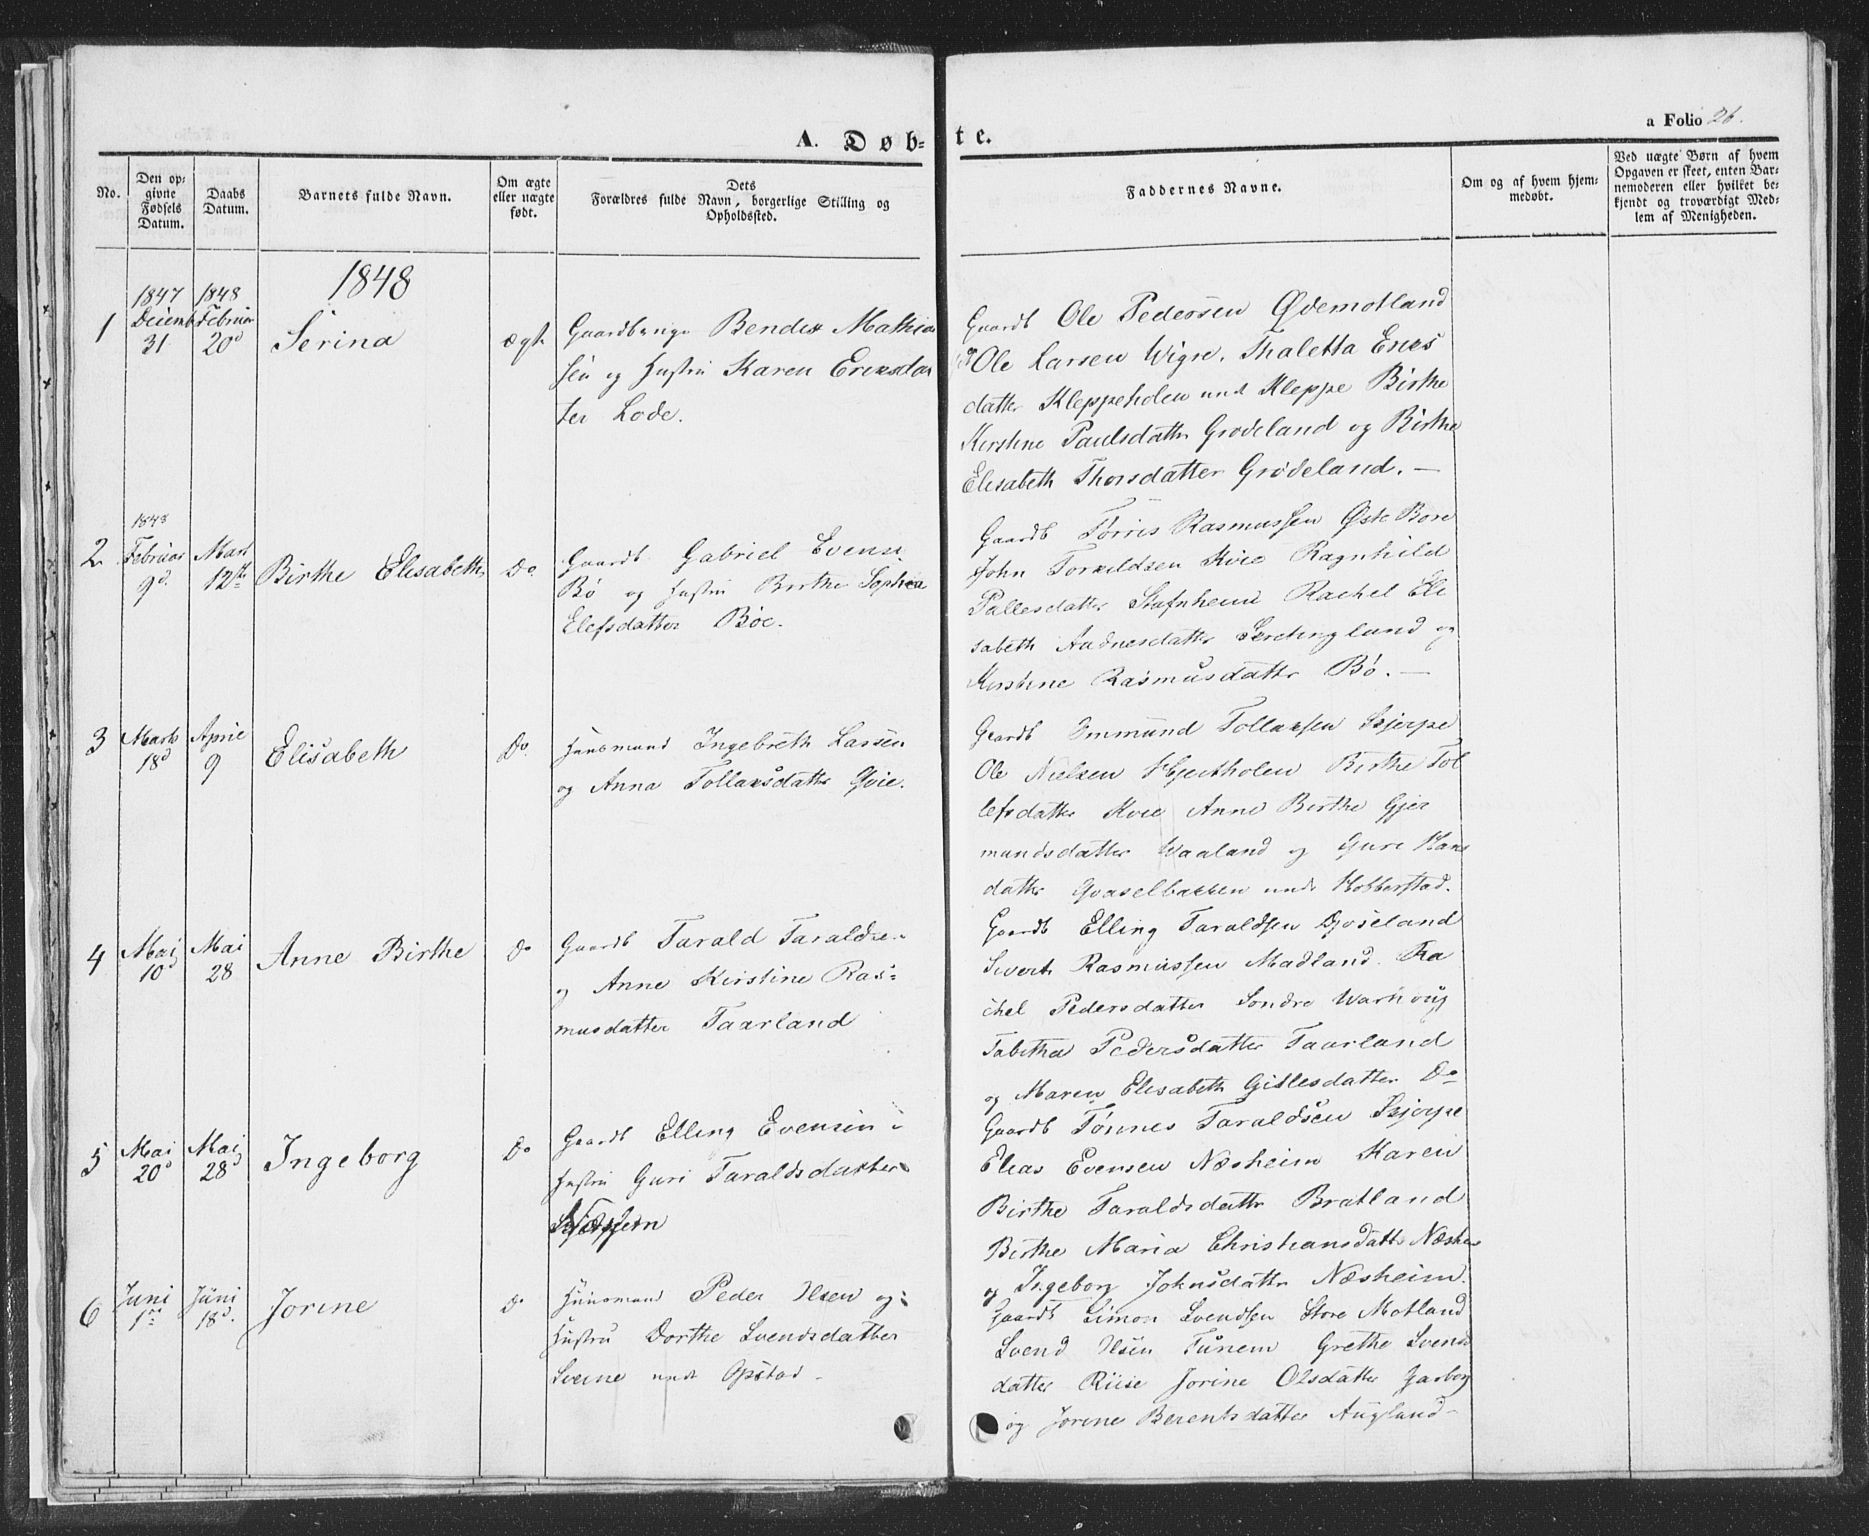 A. Døbte.
a Folio 26.
No.
Den opgivne Fødsels Datum.
Daabs Datum.
Barnets fulde Navn.
Om ægte eller uægte født.
Dets Forældres fulde Navn, borgerlige Stilling og Opholdssted.
Faddernes Navne.
Om og af hvem hjemmedøbt.
Ved uægte Børn af hvem Opgaven er skeet, enten Barnemoderen eller hvilket bekjendt og troværdigt Medlem af Menigheden.
1848
1
1847 Decemb 31
1848 Februar 20d
Serina
ægt.
Gaardbruger Bendix Mathia
sen og Hustru Karen Eriksdat
ter Lode.
Gaardb Ole Pedersen Ødemotland
og Ole Larsen Wigre. Thaletta Enes
datter Kleppeholen und Kleppe Birthe
Kirstine Paulsdattr Grødeland og Birthe
Elisabeth Thorsdatter Grødeland. —
2
1848 Februar 9d.
Marts 12te
Birthe Elisabeth
Do
Gaardb. Gabriel Evens.
Bø og Hustru Birthe Sophia
Elefsdatter Bøe.
Gaardb Tørris Rasmussen Øste Bore
John Torkildsen Kvie Ragnhild
Pallesdatter Stafnheim Rachel Eli
sabeth Audnesdattr Serchingland og
Kirstine Rasmusdattr Bø. —
3
Marts 18d
April 9
Elisabeth
Do.
Huusmand Ingebreth Larsen
og Anna Tollaksdattr Qvie.
Gaardb Ommund Tollaksen Skjerpe
Ole Nielsen Hjertholen Birthe Tol
lefsdatter Kvie Anne Birthe Gjer
mundsdatter Waaland og Guri Hans
datter Qvaselbakken unde Hobberstad.
4
Mai 10d
Mai 28
Anne Birthe
Do
Gaardb Tarald Taraldsen
og Anne Kirstine Ras-
musdatter Taarland
Gaardb Elling Taraldsen Djøseland
Sivert Rasmussen Madland. Ra
chel Pedersdatter Søndre Warhoug
Tabitha Pedersdatter Taarland
og Maren Elisabeth Gitlesdatter Do
5
Mai 20d
Mai 28d
Ingeborg
Do
Gaardb Elling Evensen i
Hustru Guri Taraldsdatter
Gaardb Tønnes Taraldsen Skjerpe
Elias Evensen Næsheim Karen
Birthe Taraldsdattr Bratland
Birthe Maria Christiansdattr Næshei
og Ingeborg Johnsdattr Næsheim.
6
Juni 1ste
Juni 18d.
Jorine
Do
Huusmand Peder Ilsen og
Hustru Dorthe Svendsdatter
Sveine unde Opstad -
Gaardb Simon Svendsen Store Motland
Svend Ilsen Tunem Grethe Svends
datter Riise Jorine Olsdatter Garborg
og Jorine Berentsdatter Augland -